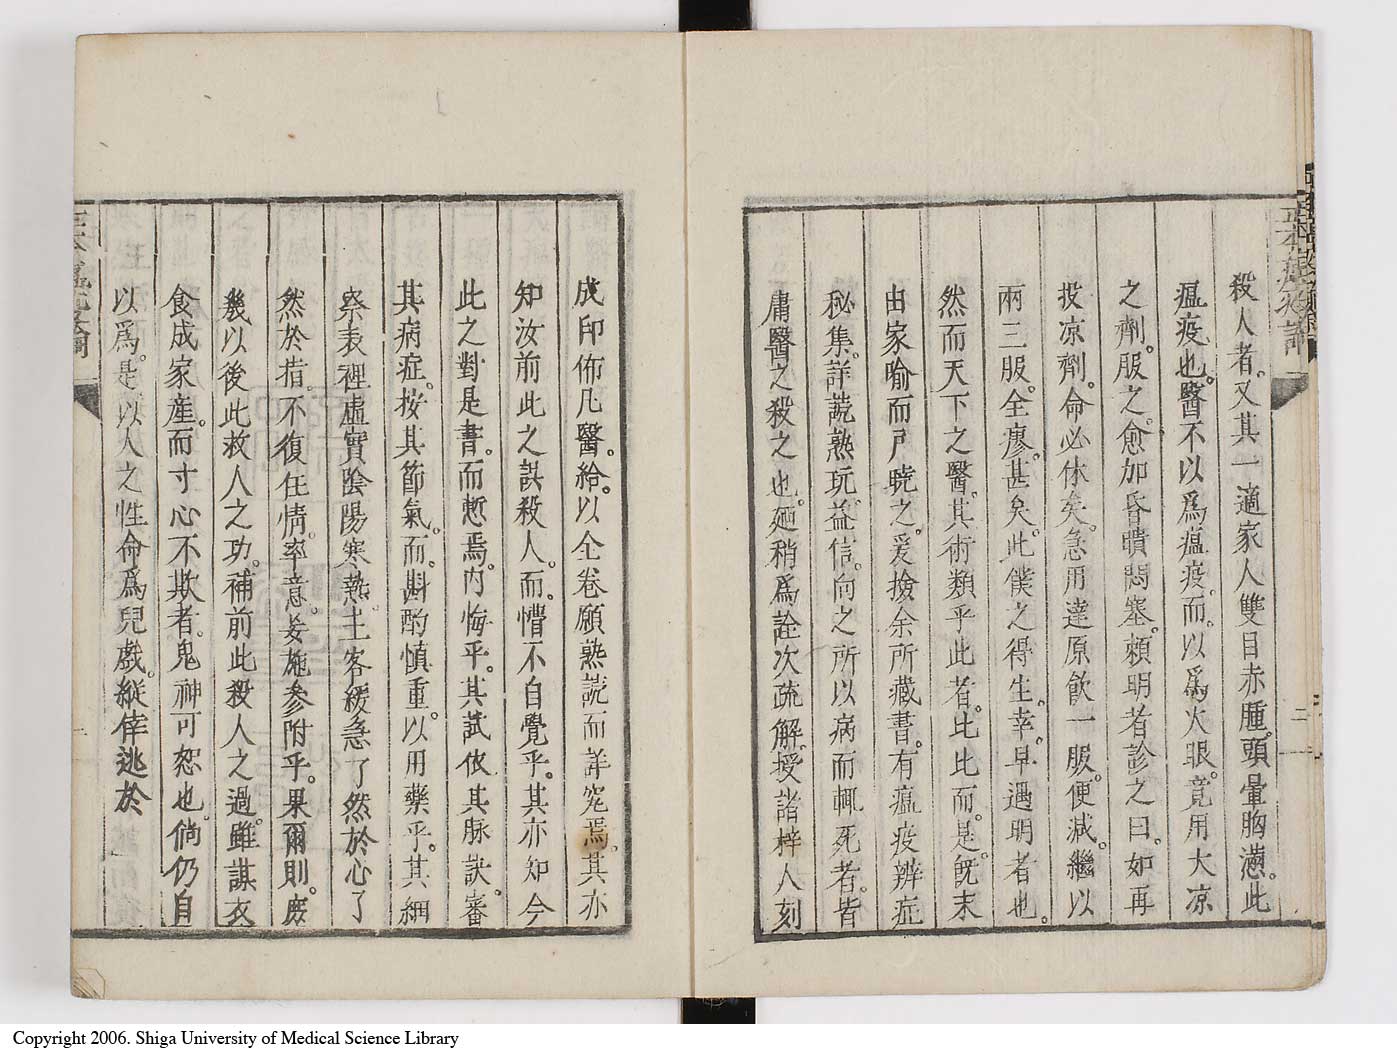 殺人者。又其一適家人雙目赤腫。頭暈胸懣。此
瘟疫也。醫不以爲瘟疫。而。以爲火眼。竟用大凉
之劑。服之。愈加昏瞶悶塞。賴明者診之曰。如再
投凉劑。命必休矣。急用達原飲一服。便減。繼以
兩三服。全瘳。甚矣。此僕之得生。幸。早遇明者也。
然而天下之醫。其術類乎此者。比比而。是。既未
由家喻而戸曉之。爰撿余所藏書。有瘟疫辨症
秘集。詳読熟玩。益信。向之所以病而輒死者。皆
庸醫之殺之也。廼稍爲詮次疏解。授諸梓人刻
成印佈凡醫。給。以仝卷願熟説而詳究焉。其亦
知汝前此之誤殺人。而。懵不自覺乎。其亦知今
此之對是書。而慙焉。内悔乎。其試依其脉訣。審
其病症。按其節氣。而。斟酌慎重。以用藥乎。其細
察表裡虛實陰陽寒熱。主客緩急了然於心了
然於指。不復任情。率意。妄施參附乎。果爾則。庶
幾以後此救人之功。補前此殺人之過。雖謀衣
食成家産。而寸心不欺者。鬼神可恕也。倘仍自
以爲。是。以人之性命爲兒戯。縦倖逃於
Copyright 2006. Shiga University of Medical Science Library